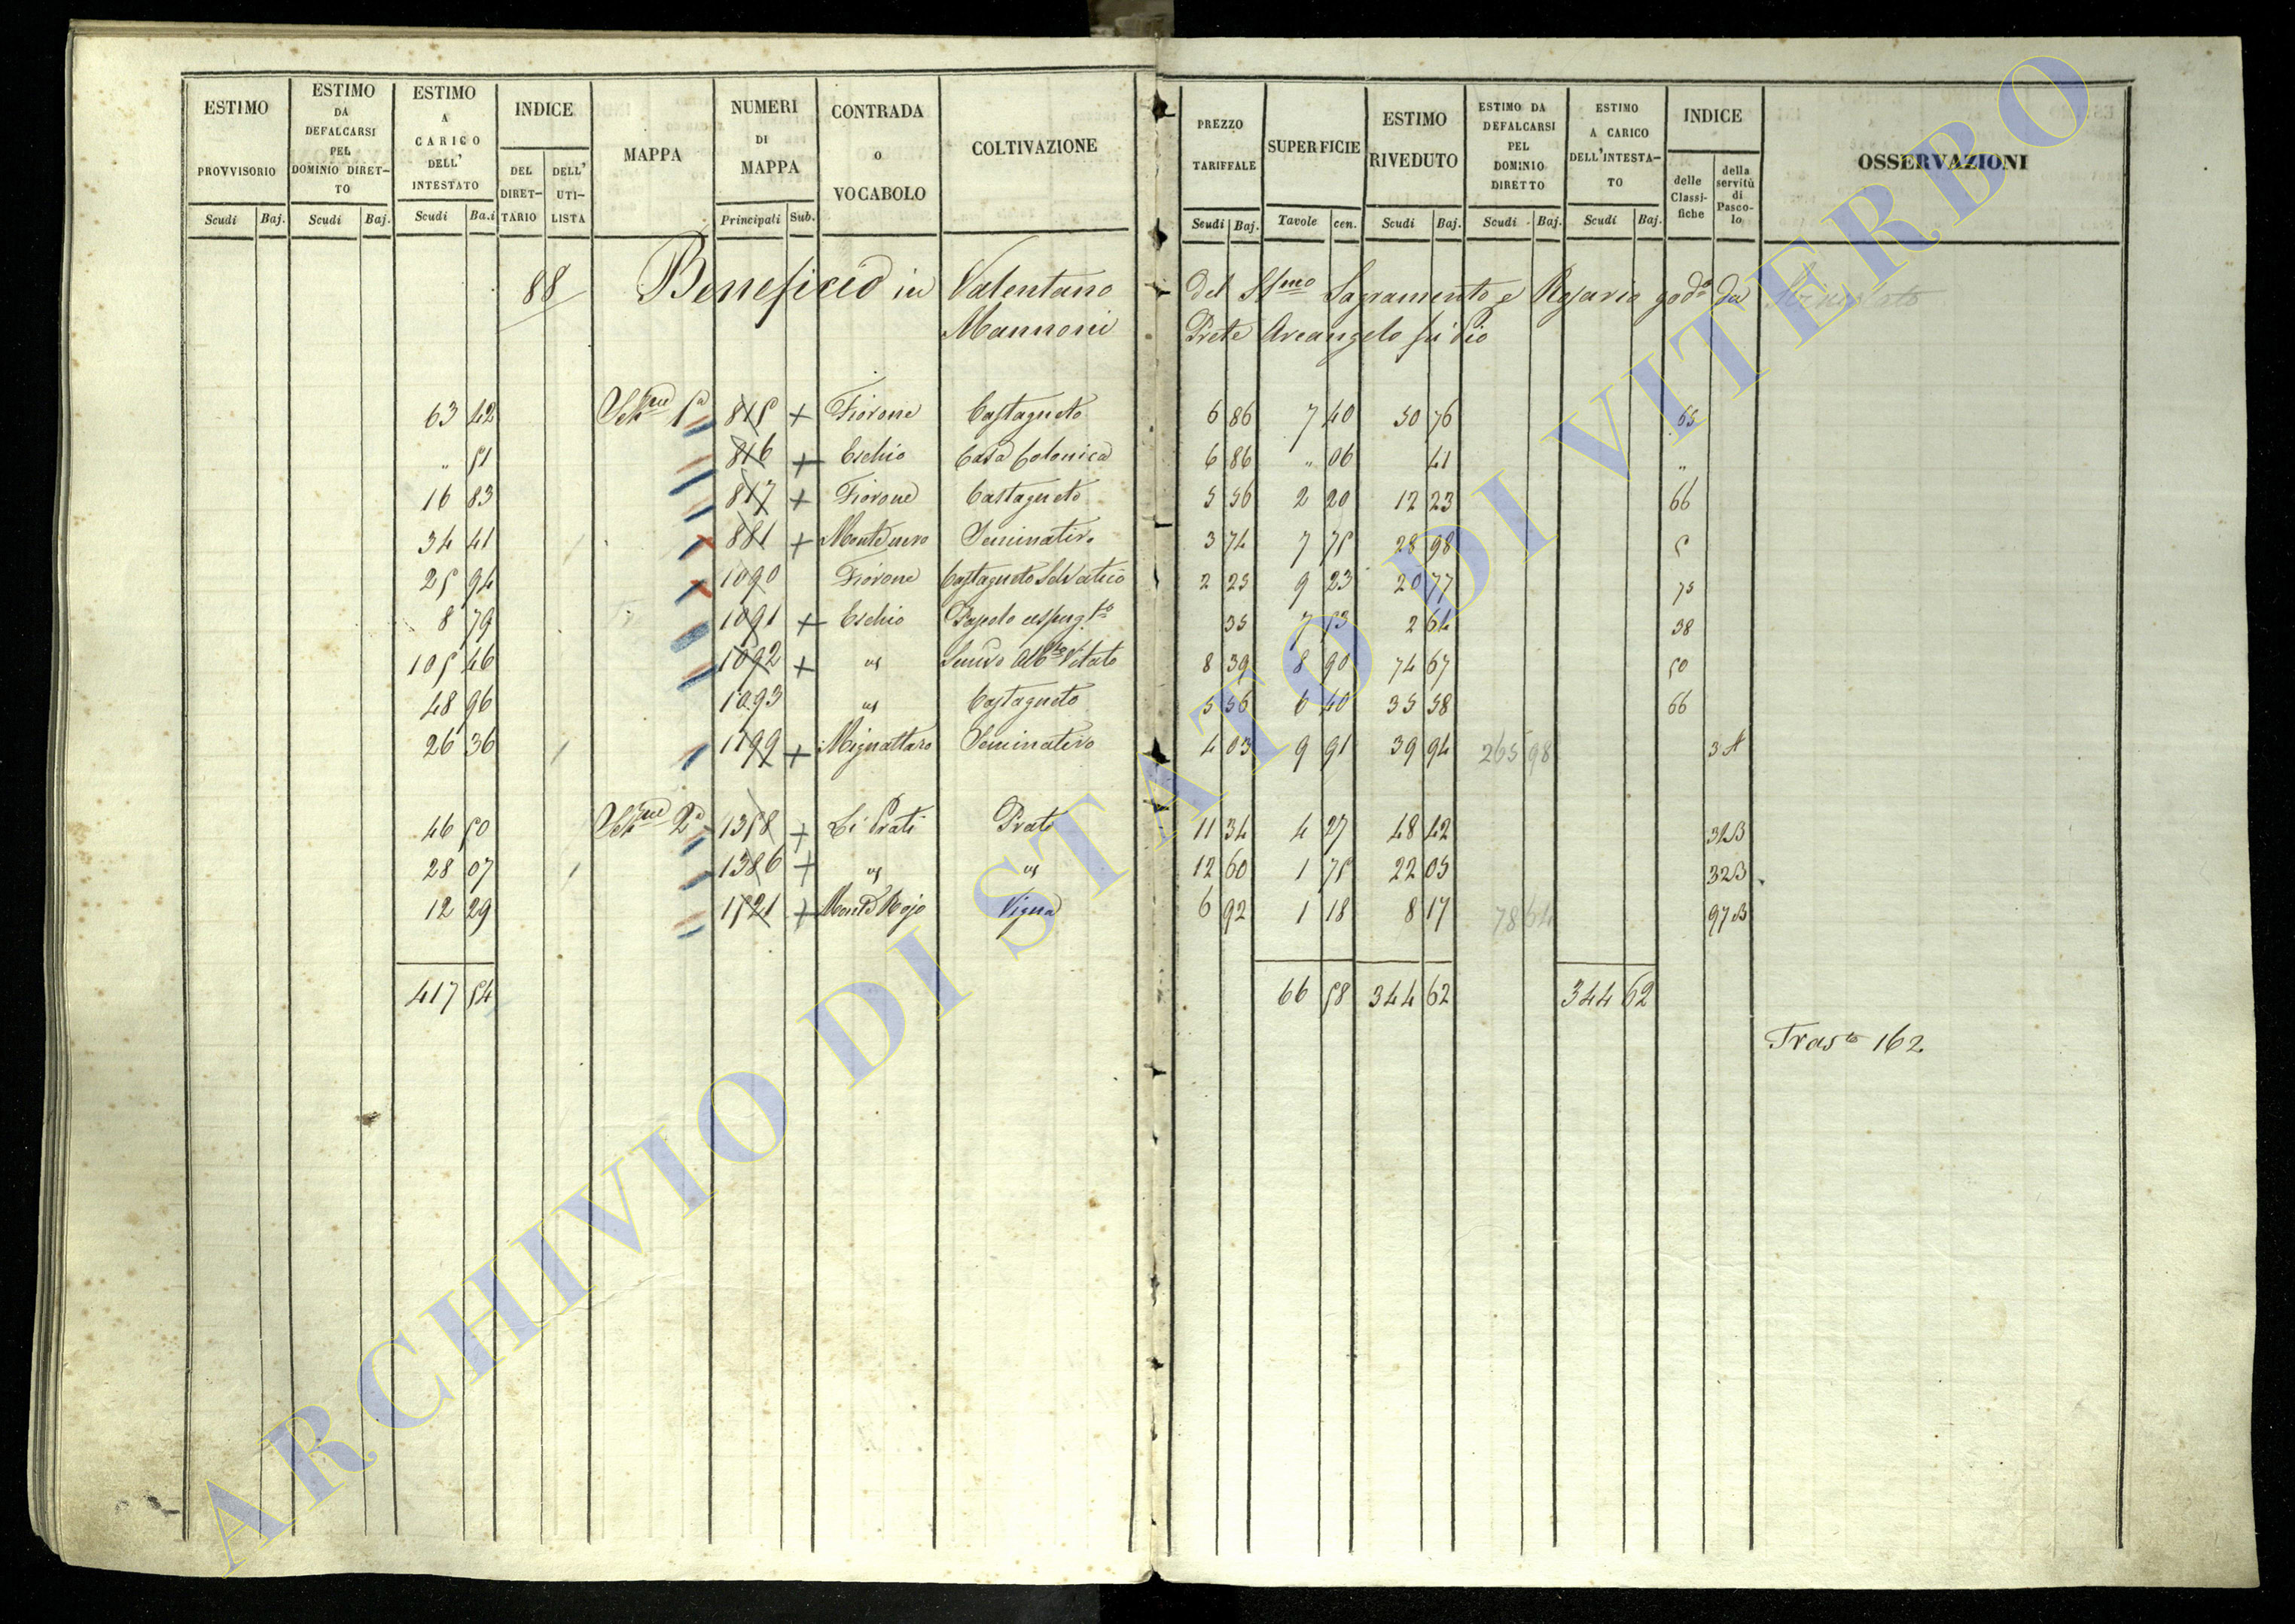 ESTIMO PROVVISORIO Scudi Baj.
ESTIMO DA DEFALCARSI PEL DOMINIO DIRET-TO Scudi Baj.
ESTIMO A CARICO DELL' INTESTATO Scudi Ba.i
INDICE DEL DIRET-TARIO DELL' UTI-LISTA
MAPPA
NUMERI DI MAPPA Principali Sub.
CONTRADA O VOCABOLO
COLTIVAZIONE
PREZZO TARIFFALE Scudi Baj.
SUPERFICIE Tavole cen.
ESTIMO RIVEDUTO Scudi Baj.
ESTIMO DA DEFALCARSI PEL DOMINIO DIRETTO Scudi Baj.
ESTIMO A CARICO DELL'INTESTA-TO Scudi Baj.
INDICE delle Classi-fiche della servitù di Pasco-lo
OSSERVAZIONI
88 Beneficio in Valentano del SSmo Sagramento e Rosario god.o da
Mannoni Prete Arcangelo fu Pio
63 42 Sez.ne 1a 815 + Fiorone Castagneto 6 86 7 40 50 76 65
" 51 816 + Eschio Casa Colonica 6 86 " 06 41 "
16 83 817 + Fiorone Castagneto 5 56 2 20 12 23 66
34 41 881 + Montenero Seminativo 3 74 7 75 28 98 5
25 94 1090 Fiorone Castagneto Selvatico 2 25 9 23 20 77 75
8 79 1091 + Eschio Pascolo cespug.to 35 7 53 2 64 38
105 46 1092 + us Semivo Alb.to Vitato 8 39 8 90 74 67 50
48 96 1093 us Castagneto 5 56 6 40 35 58 66
26 36 1199 + Mignattaro Seminativo 4 03 9 91 39 94 265 98 3A
46 50 Sez.ne 2a 1358 + Li Prati Prato 11 34 4 27 48 42 32B
28 07 1386 + us us 12 60 1 75 22 05 32B
12 29 1521 + Monte Rojo Vigna 6 92 1 18 8 17 78 64 97B
417 54 66 58 344 62 344 62
Tras.to 162
ARCHIVIO DI STATO DI VITERBO